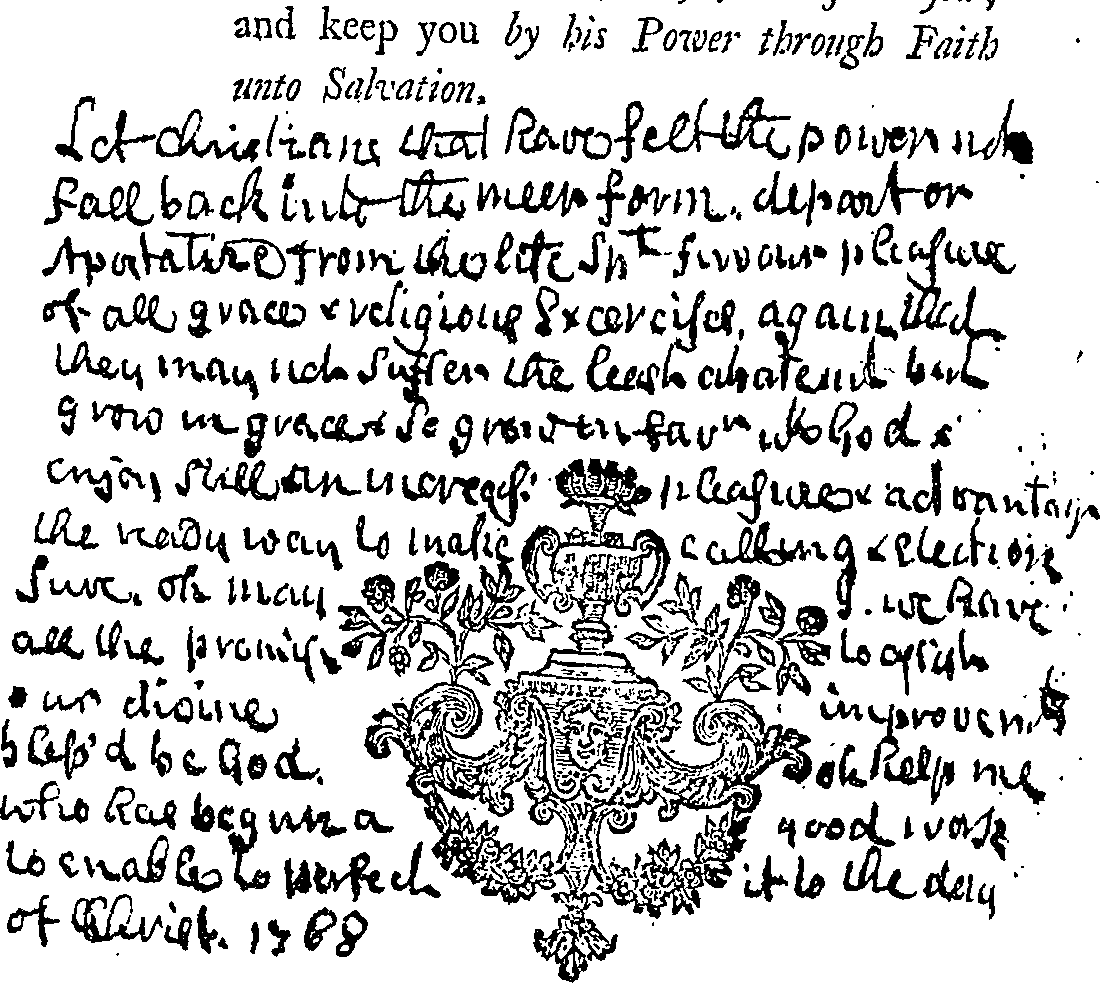 and keep you by his Power through Faith
unto Salvation.
Let Christians that have felt the power not
fall back into the meer form. depart or
Apostatize from the life favour pleasure
of all grace & religious Excercise, again that
they may not Suffer the least abatemt but
grow in grace & So grow in favr wth God &
enjoy still an increas: pleasure & advantage
the ready way to make calling & election
Sure. oh may we have
all the promise to assist
our divine improvemts
bless'd be God. oh help me
who has begun a good work
to enable to perfect it to the day
of Christ. 1768